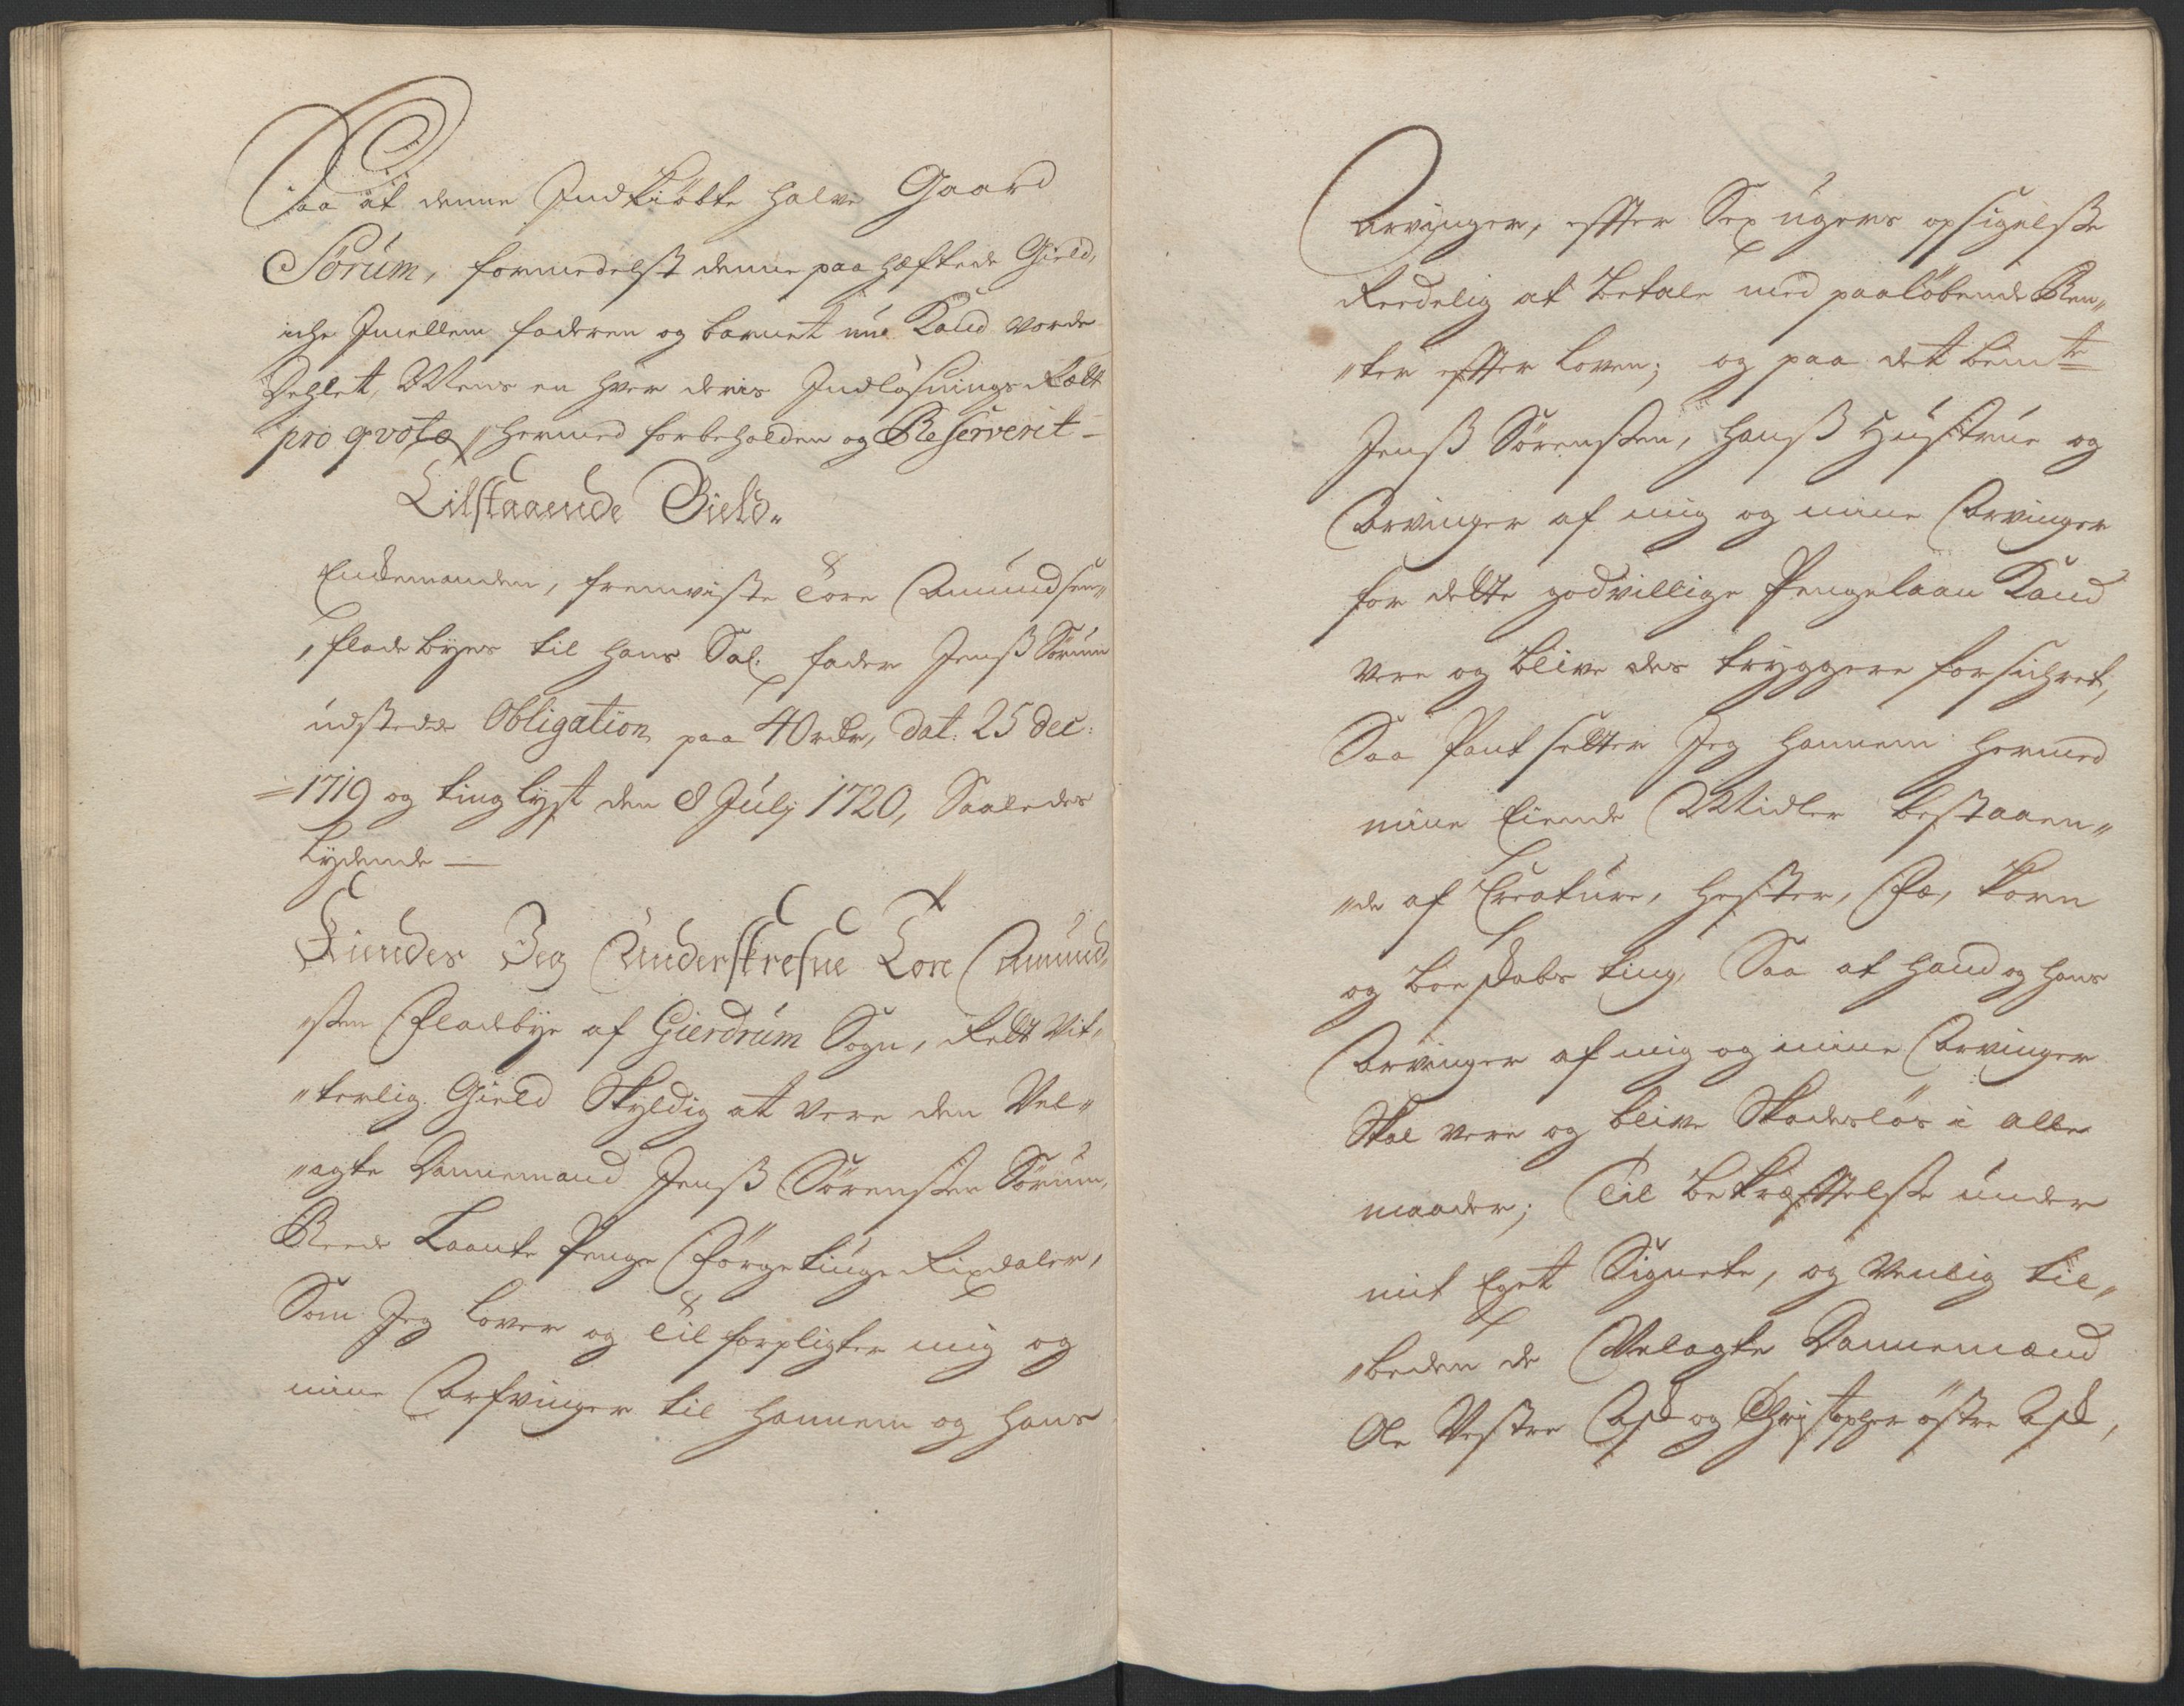 Saa at denne Indkiöbte halve Gaard
Sörúm, formedelst denne paa hæftede Gield,
iche Imellem faderen og barnet nu Kand vorde
Dehlet, Mens en hver deris Indlösnings Rætt
pro qvota hermed forbeholden og Reserverit -
Tilstaaende Gield.
Enchemanden, fremviste Tore Amúndsen„
„fladebyes til hans Sal. fader Jenß Sörúm
údstede Obligation paa 40 rdr, dat. 25 dec:
1719 og tinglyst den 8 Júlj 1720, Saaledes
Lydende —
Kiendes Jeg Únderskrefne Tore Amúnd„
„sen Fladebye af Gierdrúm Sogn, Rett Vit„
„terlig Gield Skyldig at vere den Vel„
„agte Dannemand Jenß Sörensen Sörúm,
Reede Laante Penge Förgetiúge Rixdaler,
Som Jeg lover og Tilforpligter mig og
mine Arfvinger til hannem og hans
Arvinger, effter Sex úgers opsigelse
Reedelig at betale med paalöbende Ren„
„ter effter loven; og paa det bemte
Jenß Sörensen, hanß Hústrúe og
Arvinger af mig og mine Arvinger
for dette godvillige Pengelaan Kand
vere og blive des tryggere forsichret,
Saa Pantsetter Jeg hannem hermed
mine Eiende Midler bestaaen„
„de af Creatúre, Hester, Fæ, Korn
og boeskabs ting, Saa at hand og hans
Arvinger af mig og mine Arvinger
Skal vere og blive Skadeslös i alle
maader; Til bekræfftelse únder
mit Eget Signete, og Venlig til„
„beden de Velagte Dannemænd
Ole Vestre Ask og Christopher östre Ask,